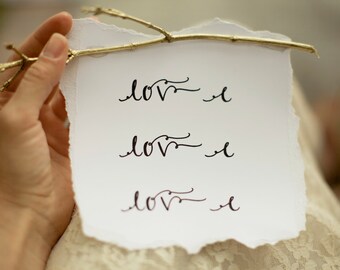 love
love
love